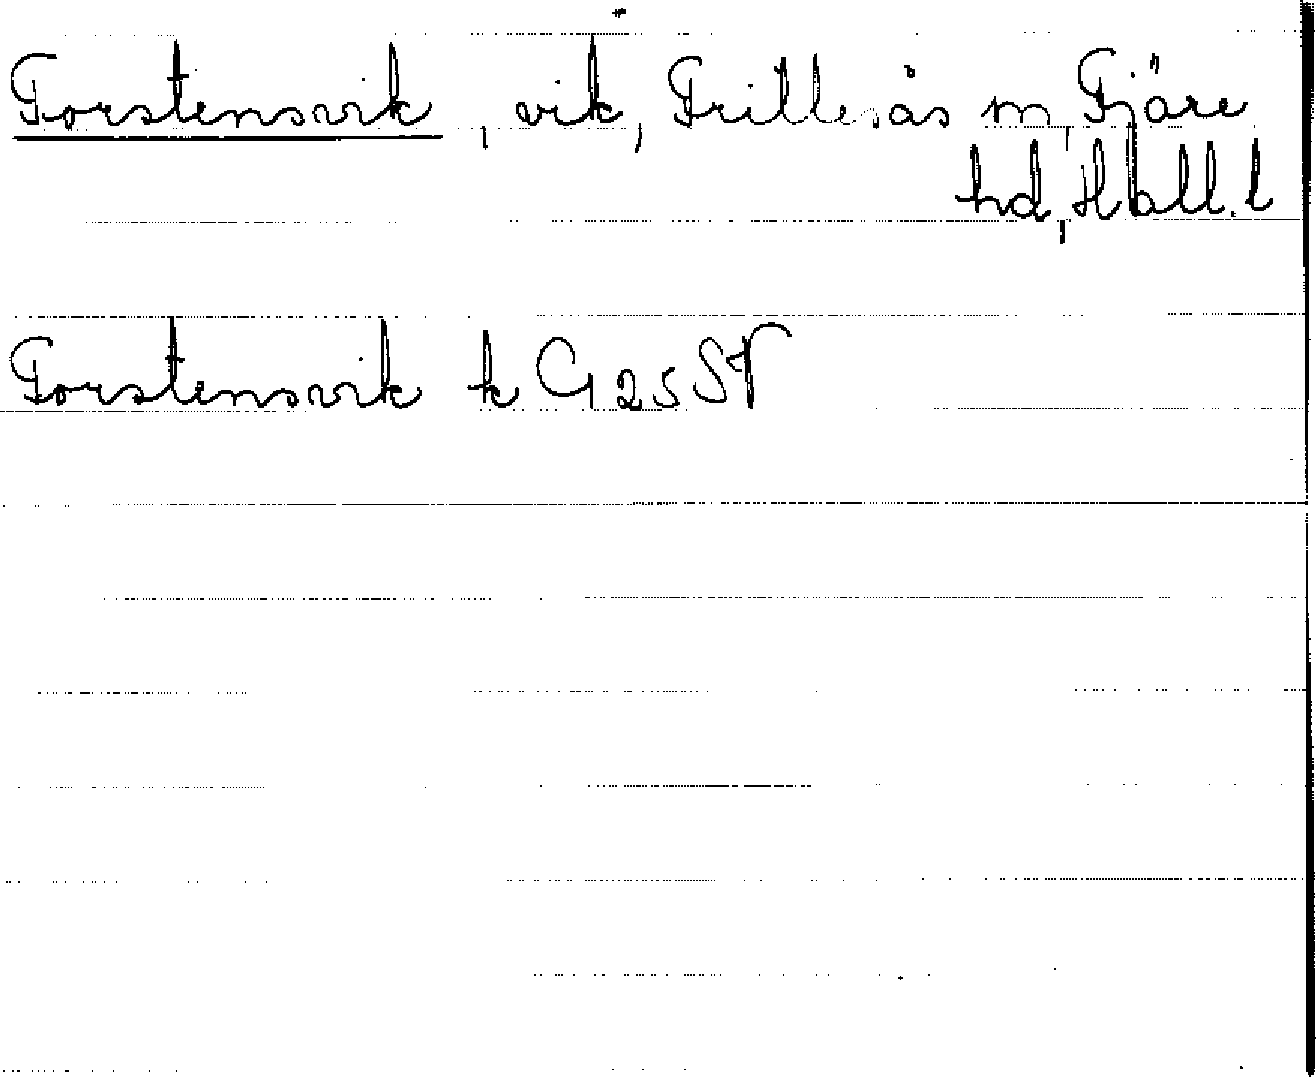 Torstensvik, vik, Frillesås sn, Fjäre
hd, Hall. l
Torstensvik k G 25 SV